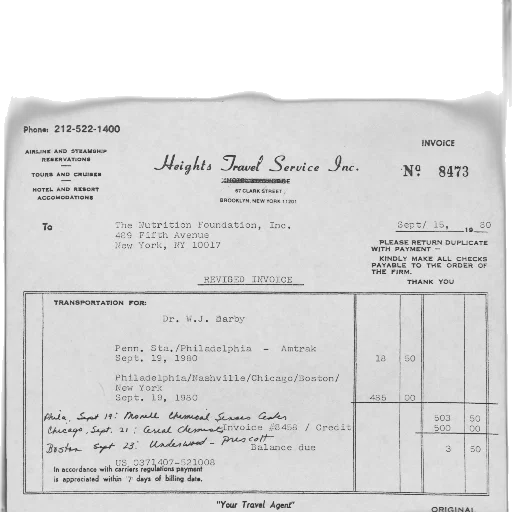 Phone: 212-522-1400
INVOICE
AIRLINE AND STEAMSHIP
RESERVATIONS
TOURS AND CRUISES
HOTEL AND RESORT
ACCOMODATIONS
Heights Travel Service Inc.
67 CLARK STREET
BROOKLYN, NEW YORK 11201
No 8473
To The Nutrition Foundation, Inc.
489 Fifth Avenue
New York, NY 10017
Sept/ 15, 19 80
PLEASE RETURN DUPLICATE
WITH PAYMENT –
KINDLY MAKE ALL CHECKS
PAYABLE TO THE ORDER OF
THE FIRM.
THANK YOU
REVISED INVOICE
TRANSPORTATION FOR:
Dr. W.J. Darby
Penn. Sta./Philadelphia - Amtrak
Sept. 19, 1980 18 50
Philadelphia/Nashville/Chicago/Boston/
New York
Sept. 19, 1980 485 00
Phila, Sept 19: Monell Chemical Senses Center 503 50
Chicago, Sept. 21: Cereal Chemists Invoice #8458 / Credit 500 00
Boston Sept 23: Underwood - Prescott
Balance due 3 50
US 0371407-521008
In accordance with carriers regulations payment
is appreciated within 7 days of billing date.
"Your Travel Agent"
ORIGINAL